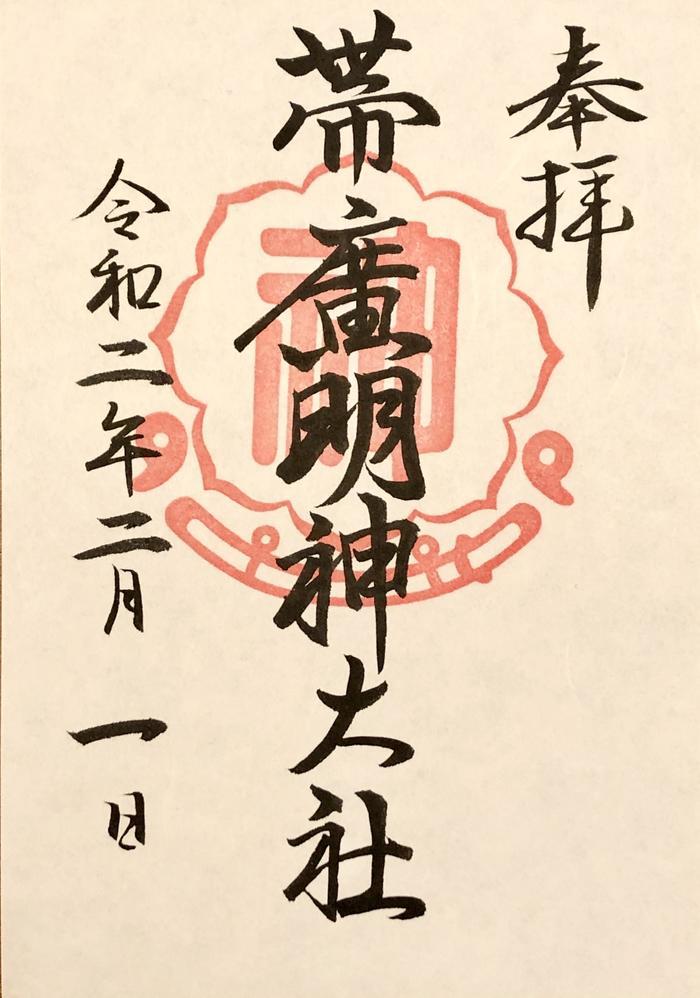 奉拝
帯廣明神大社
令和二年二月一日